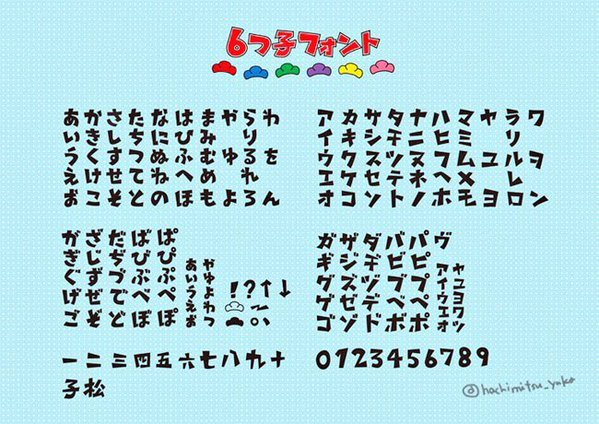 6つ子フォント
あかさたなはまやらわ
いきしちにひみ り
うくすつぬふむゆるを
えけせてねへめ れ
おこそとのほもよろん
アカサタナハマヤラワ
イキシチニヒミ リ
ウクスツヌフムユルヲ
エケセテネヘメ レ
オコソトノホモヨロン
がざだばぱ
ぎじぢびぴ
ぐずづぶぷ
げぜでべぺ
ごぞどぼぽ
あ や
い ゆ
う よ
え わ
お つ
!?↑↓
~
。、
ガザダバパヴ
ギジヂビピ
グズヅブプ
ゲゼデベペ
ゴゾドボポ
ア ヤ
イ ユ
ウ ヨ
エ ワ
オ ツ
一二三四五六七八九十
子松
0123456789
@hachimitsu_yuko